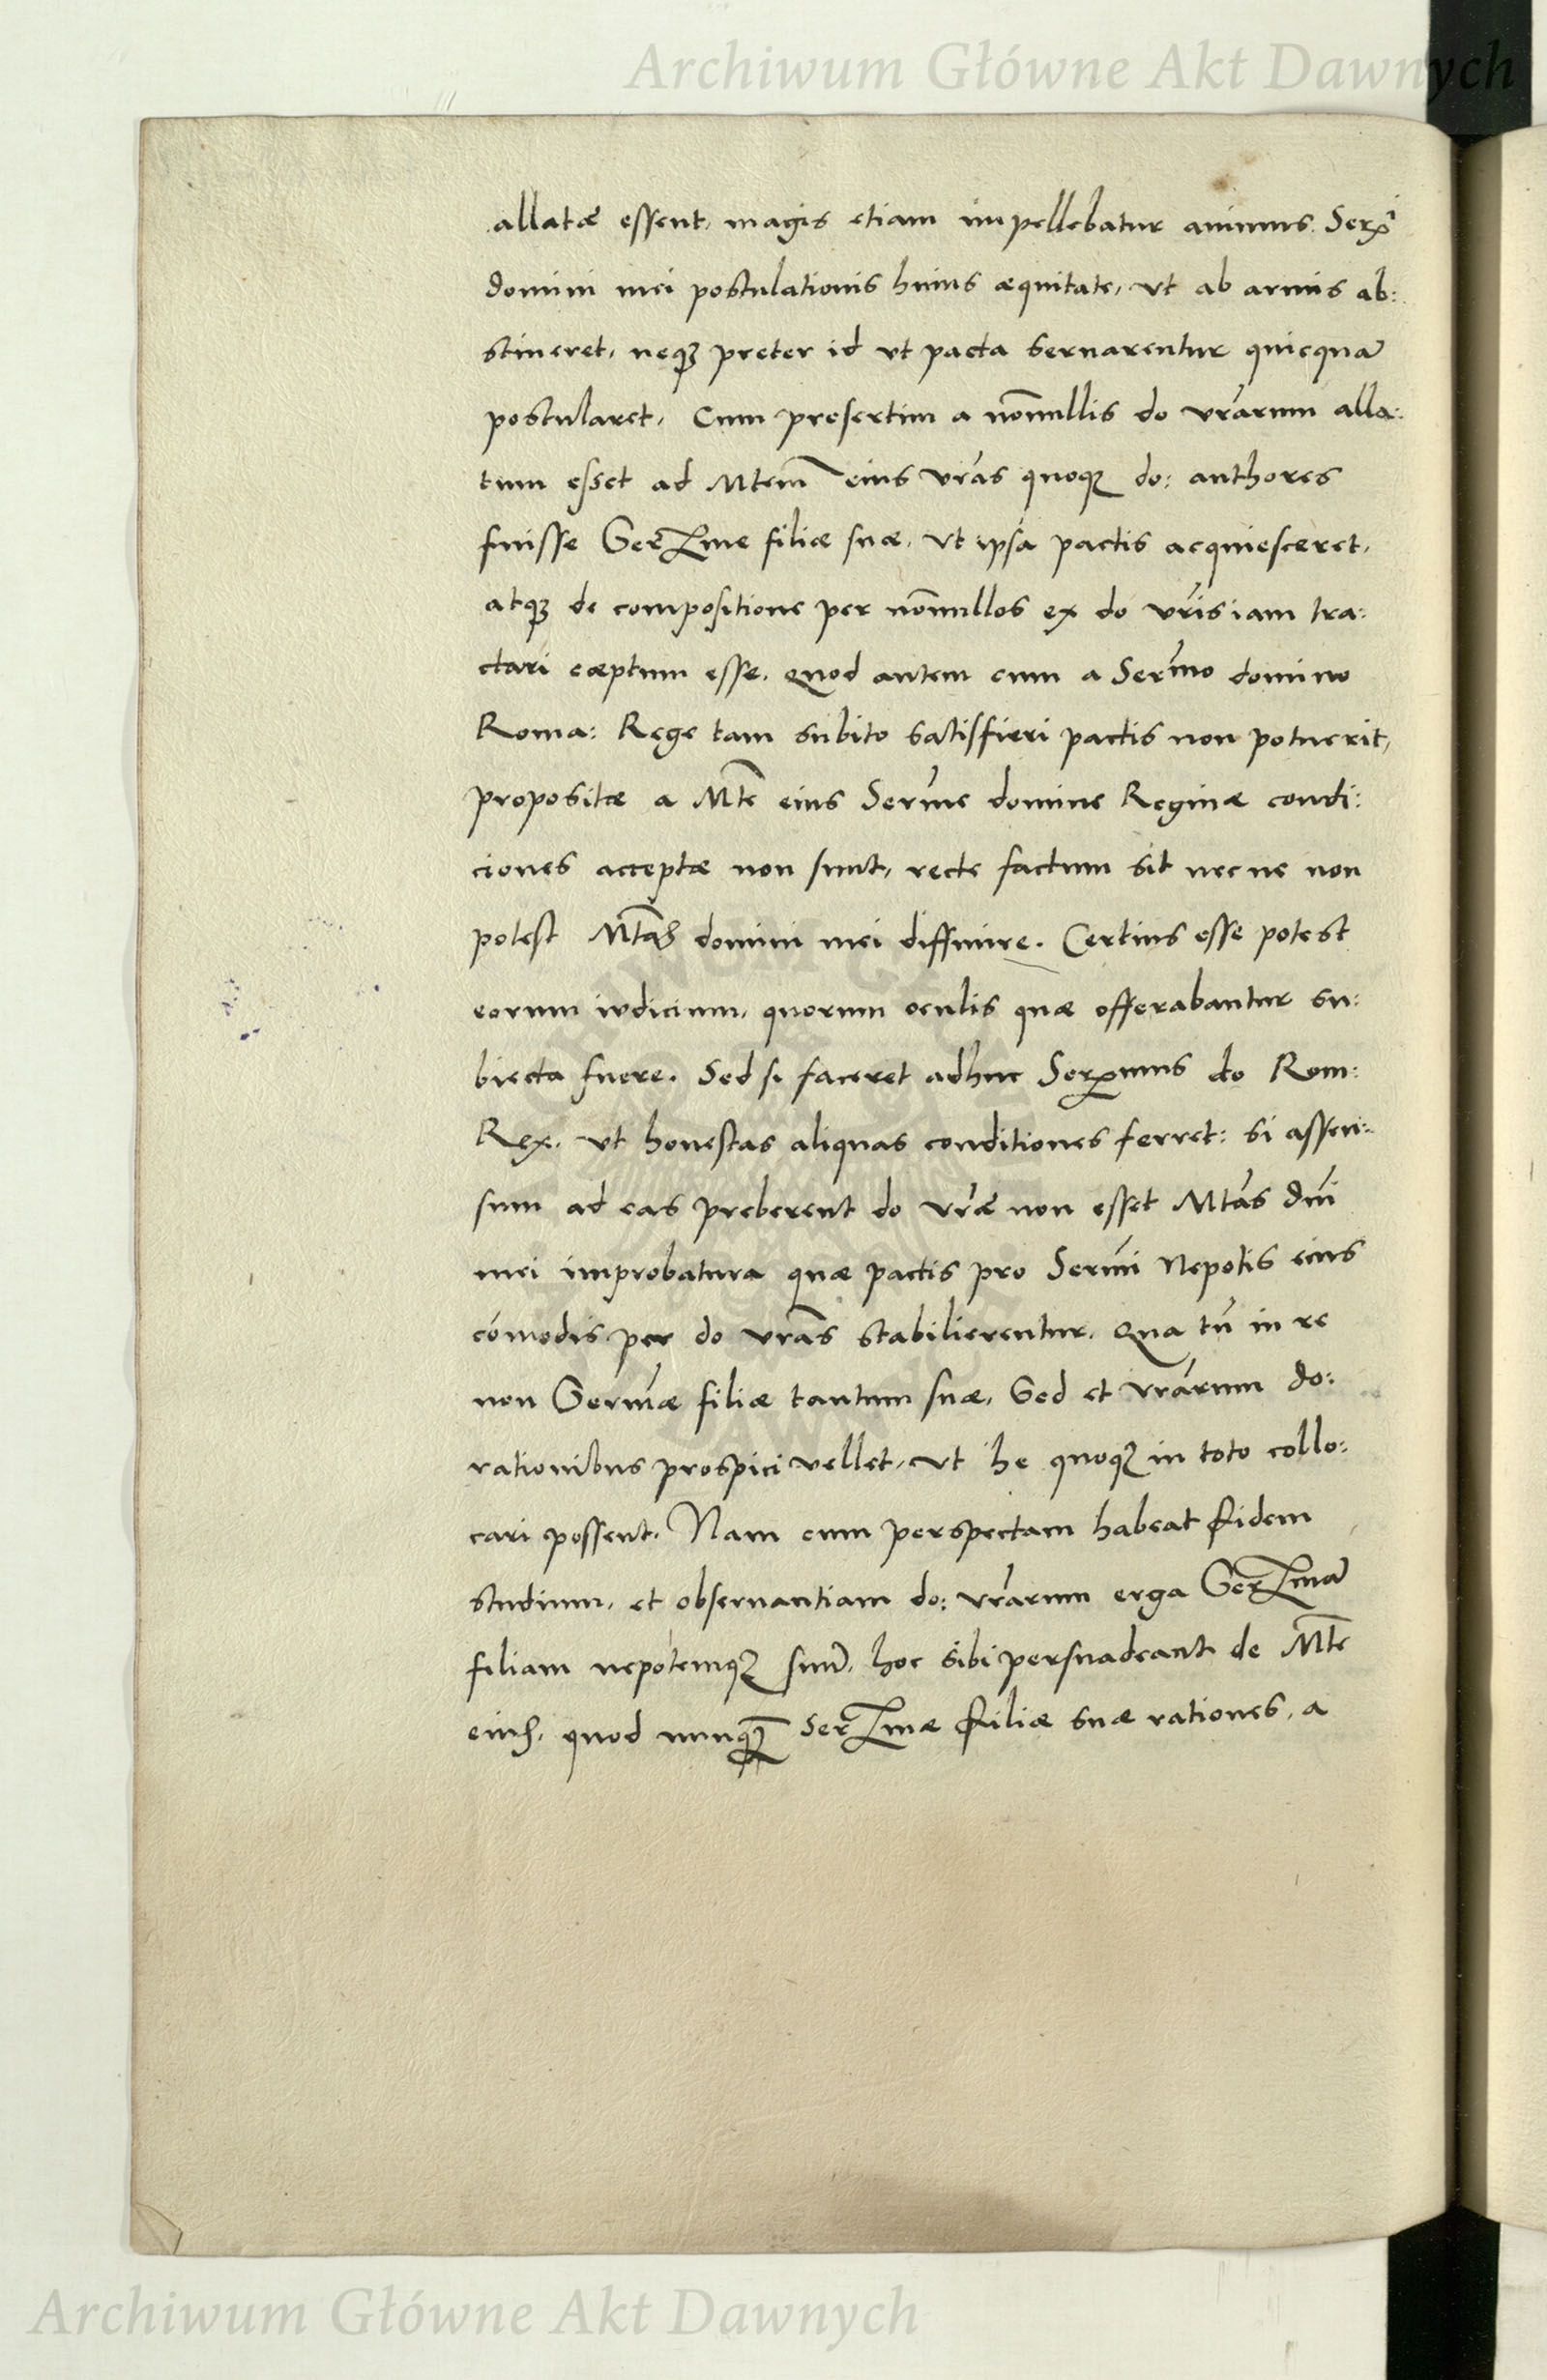 Archiwum Główne Akt Dawnych
allatæ essent, magis etiam impellebatur animus Sermi
domini mei postulationis huius æquitate, ut ab armis ab:
stineret, neq3 preter id ut pacta servarentur quicquā
postularet. Cum presertim a nōnullis do vrārum alla:
tum esset ad Mtem eius vrās quoq3 do: authores
fuisse Serme filiæ suæ, ut ipsa pactis acquiesceret,
atq3 de compositione per nōnullos ex do vrīs iam tra:
ctari cæptum esse. Quod autem cum a Sermo domino
Roma: Rege tam subito satisfieri pactis non potuerit,
propositæ a Mte eius Serme domine Reginæ condi:
ciones acceptæ non sunt, recte factum sit nec ne non
potest Mtas domini mei diffinire. Certius esse potest
eorum iudicium, quorum oculis quæ offerabantur su:
biecta fuere. Sed si faceret adhuc Sermus do Rom:
Rex, ut honestas aliquas conditiones ferret: si assen:
sum ad eas preberent do vræ non esset Mtas dni
mei improbatura quæ pactis pro Sermi Nepotis eius
cōmodis per do vrās stabilierentur. Qua tn̄ in re
non Sermæ filiæ tantum suæ, sed et vrārum do:
rationibus prospici vellet, ut he quoq3 in toto collo:
cari possent. Nam cum perspectam habeat fidem
studium, et observantiam do: vrārum erga Sermā
filiam nepotemq3 suum, hoc sibi persuadeant de Mte
eius, quod nunq̄ Sermæ filiæ suæ rationes, a
Archiwum Główne Akt Dawnych